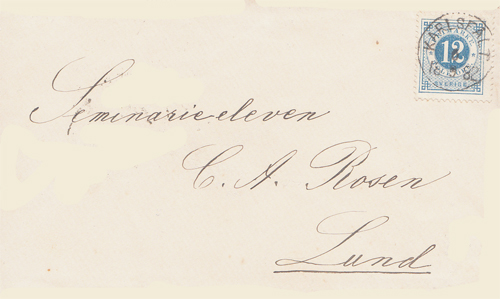 KARLSFÄLT
12
SVERIGE
Seminarieeleven
C. A. Rosen
Lund